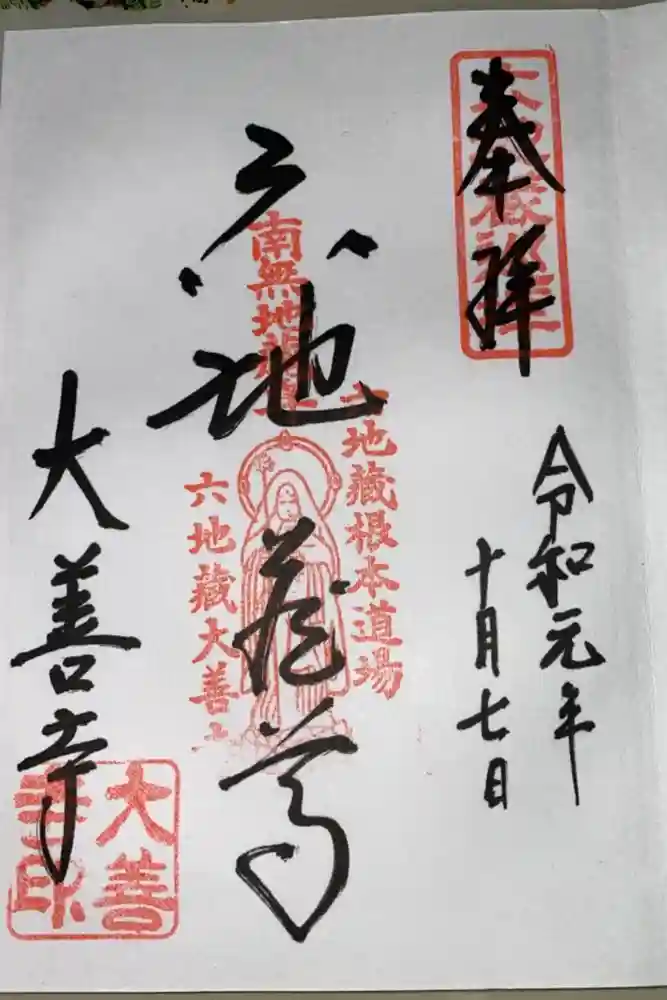 奉拝
令和元年
十月七日
六地蔵尊
南無地蔵尊
六地蔵根本道場
六地蔵大善寺
大善寺
大善
寺印